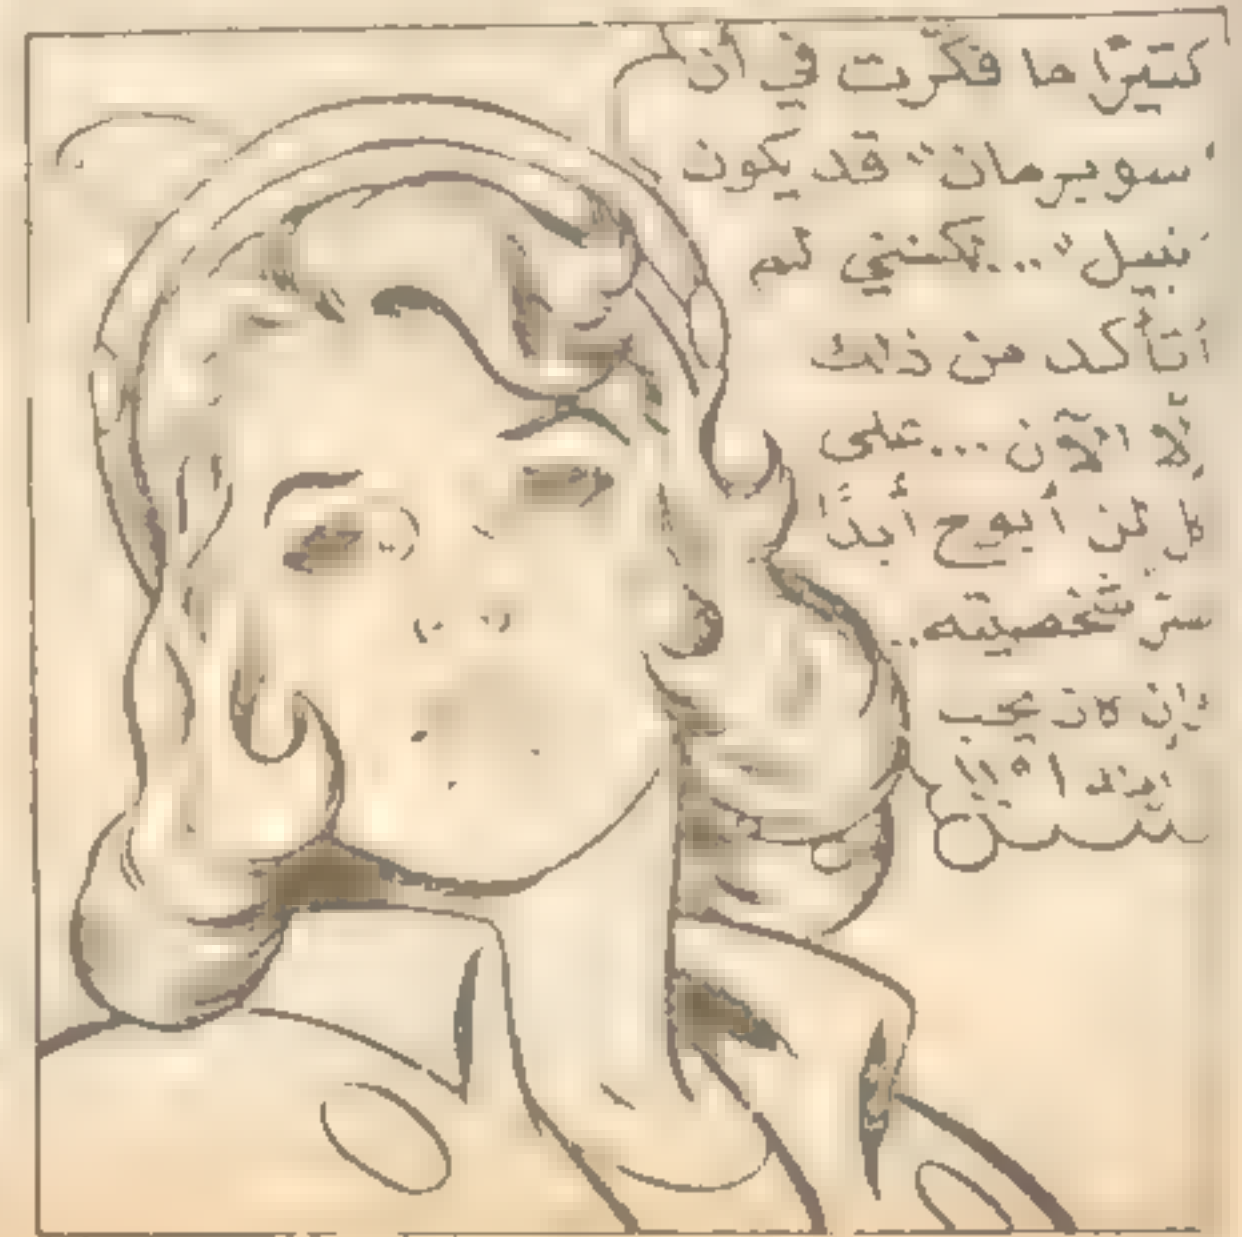 كثيرًا ما فكّرت في أن
"سوبرمان" قد يكون
"نبيل"... لكنني لم
أتأكد من ذلك
إلّا الآن... على
كل لن أبوح أبدًا
سرّ شخصيته..
وإن